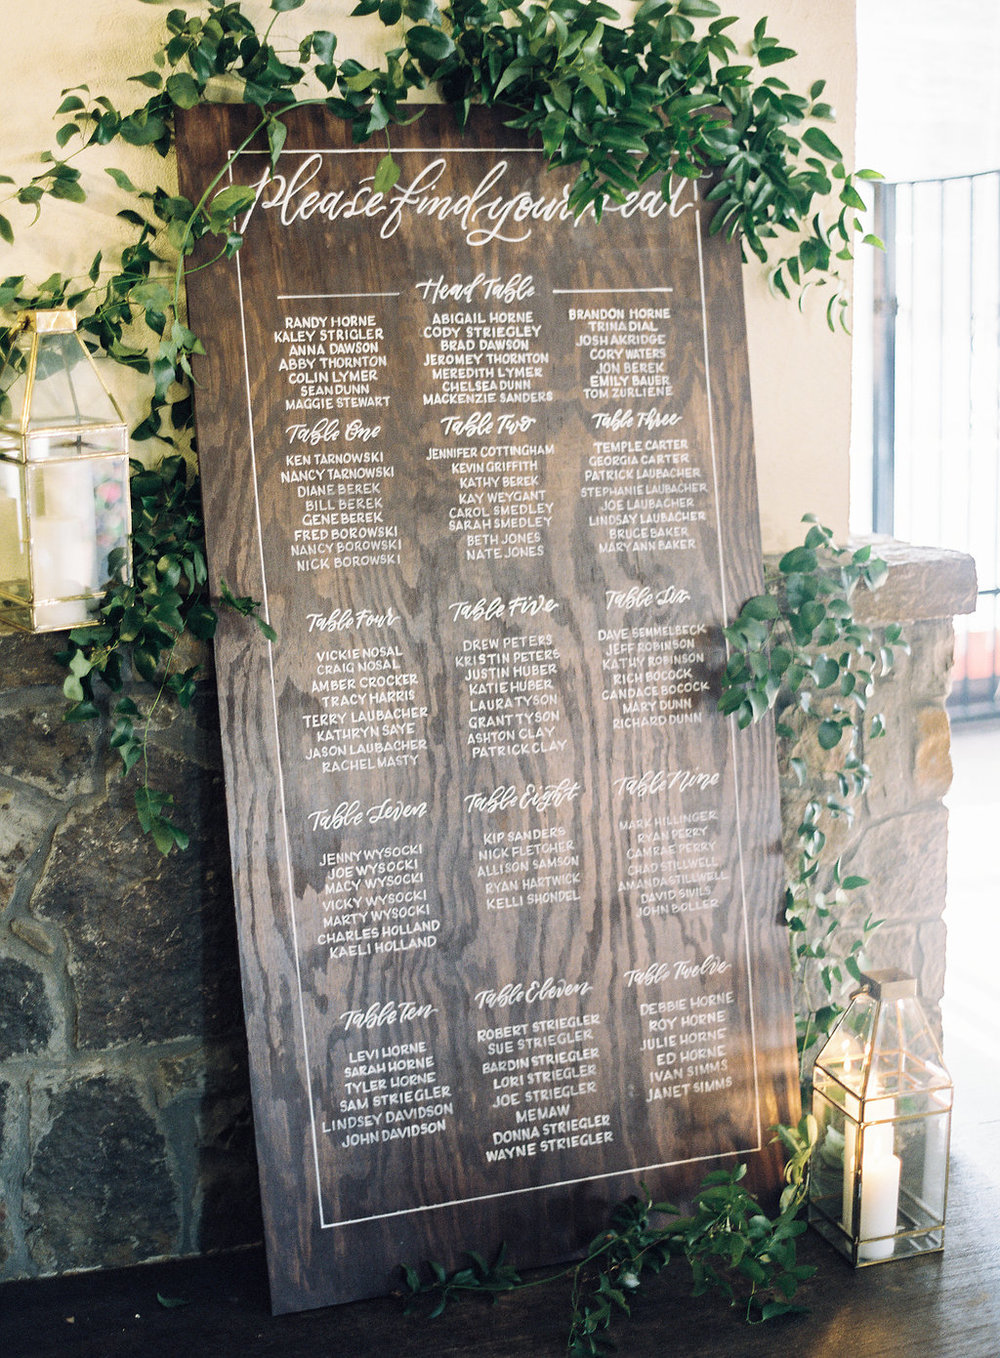 Please find your seat
Head Table
RANDY HORNE
KALEY STRIGLER
ANNA DAWSON
ABBY THORNTON
COLIN LYMER
SEAN DUNN
MAGGIE STEWART
ABIGAIL HORNE
CODY STRIEGLEY
BRAD DAWSON
JEROMEY THORNTON
MEREDITH LYMER
CHELSEA DUNN
MACKENZIE SANDERS
BRANDON HORNE
TRINA DIAL
JOSH AKRIDGE
CORY WATERS
JON BEREK
EMILY BAUER
TOM ZURLIENE
Table One
KEN TARNOWSKI
NANCY TARNOWSKI
DIANE BEREK
BILL BEREK
GENE BEREK
FRED BOROWSKI
NANCY BOROWSKI
NICK BOROWSKI
Table Two
JENNIFER COTTINGHAM
KEVIN GRIFFITH
KATHY BEREK
KAY WEYGANT
CAROL SMEDLEY
SARAH SMEDLEY
BETH JONES
NATE JONES
Table Three
TEMPLE CARTER
GEORGIA CARTER
PATRICK LAUBACHER
STEPHANIE LAUBACHER
JOE LAUBACHER
LINDSAY LAUBACHER
BRUCE BAKER
MARY ANN BAKER
Table Four
VICKIE NOSAL
CRAIG NOSAL
AMBER CROCKER
TRACY HARRIS
TERRY LAUBACHER
KATHRYN SAYE
JASON LAUBACHER
RACHEL MASTY
Table Five
DREW PETERS
KRISTIN PETERS
JUSTIN HUBER
KATIE HUBER
LAURA TYSON
GRANT TYSON
ASHTON CLAY
PATRICK CLAY
Table Six
DAVE SEMMELBECK
JEFF ROBINSON
KATHY ROBINSON
RICH BOCOCK
CANDACE BOCOCK
MARY DUNN
RICHARD DUNN
Table Seven
JENNY WYSOCKI
JOE WYSOCKI
MACY WYSOCKI
VICKY WYSOCKI
MARTY WYSOCKI
CHARLES HOLLAND
KAELI HOLLAND
Table Eight
KIP SANDERS
NICK FLETCHER
ALLISON SAMSON
RYAN HARTWICK
KELLI SHONDEL
Table Nine
MARK HILLINGER
RYAN PERRY
CAMRAE PERRY
CHAD STILLWELL
AMANDA STILLWELL
DAVID SIVILS
JOHN BOLLER
Table Ten
LEVI HORNE
SARAH HORNE
TYLER HORNE
SAM STRIEGLER
LINDSEY DAVIDSON
JOHN DAVIDSON
Table Eleven
ROBERT STRIEGLER
SUE STRIEGLER
BARDIN STRIEGLER
LORI STRIEGLER
JOE STRIEGLER
MEMAW
DONNA STRIEGLER
WAYNE STRIEGLER
Table Twelve
DEBBIE HORNE
ROY HORNE
JULIE HORNE
ED HORNE
IVAN SIMMS
JANET SIMMS